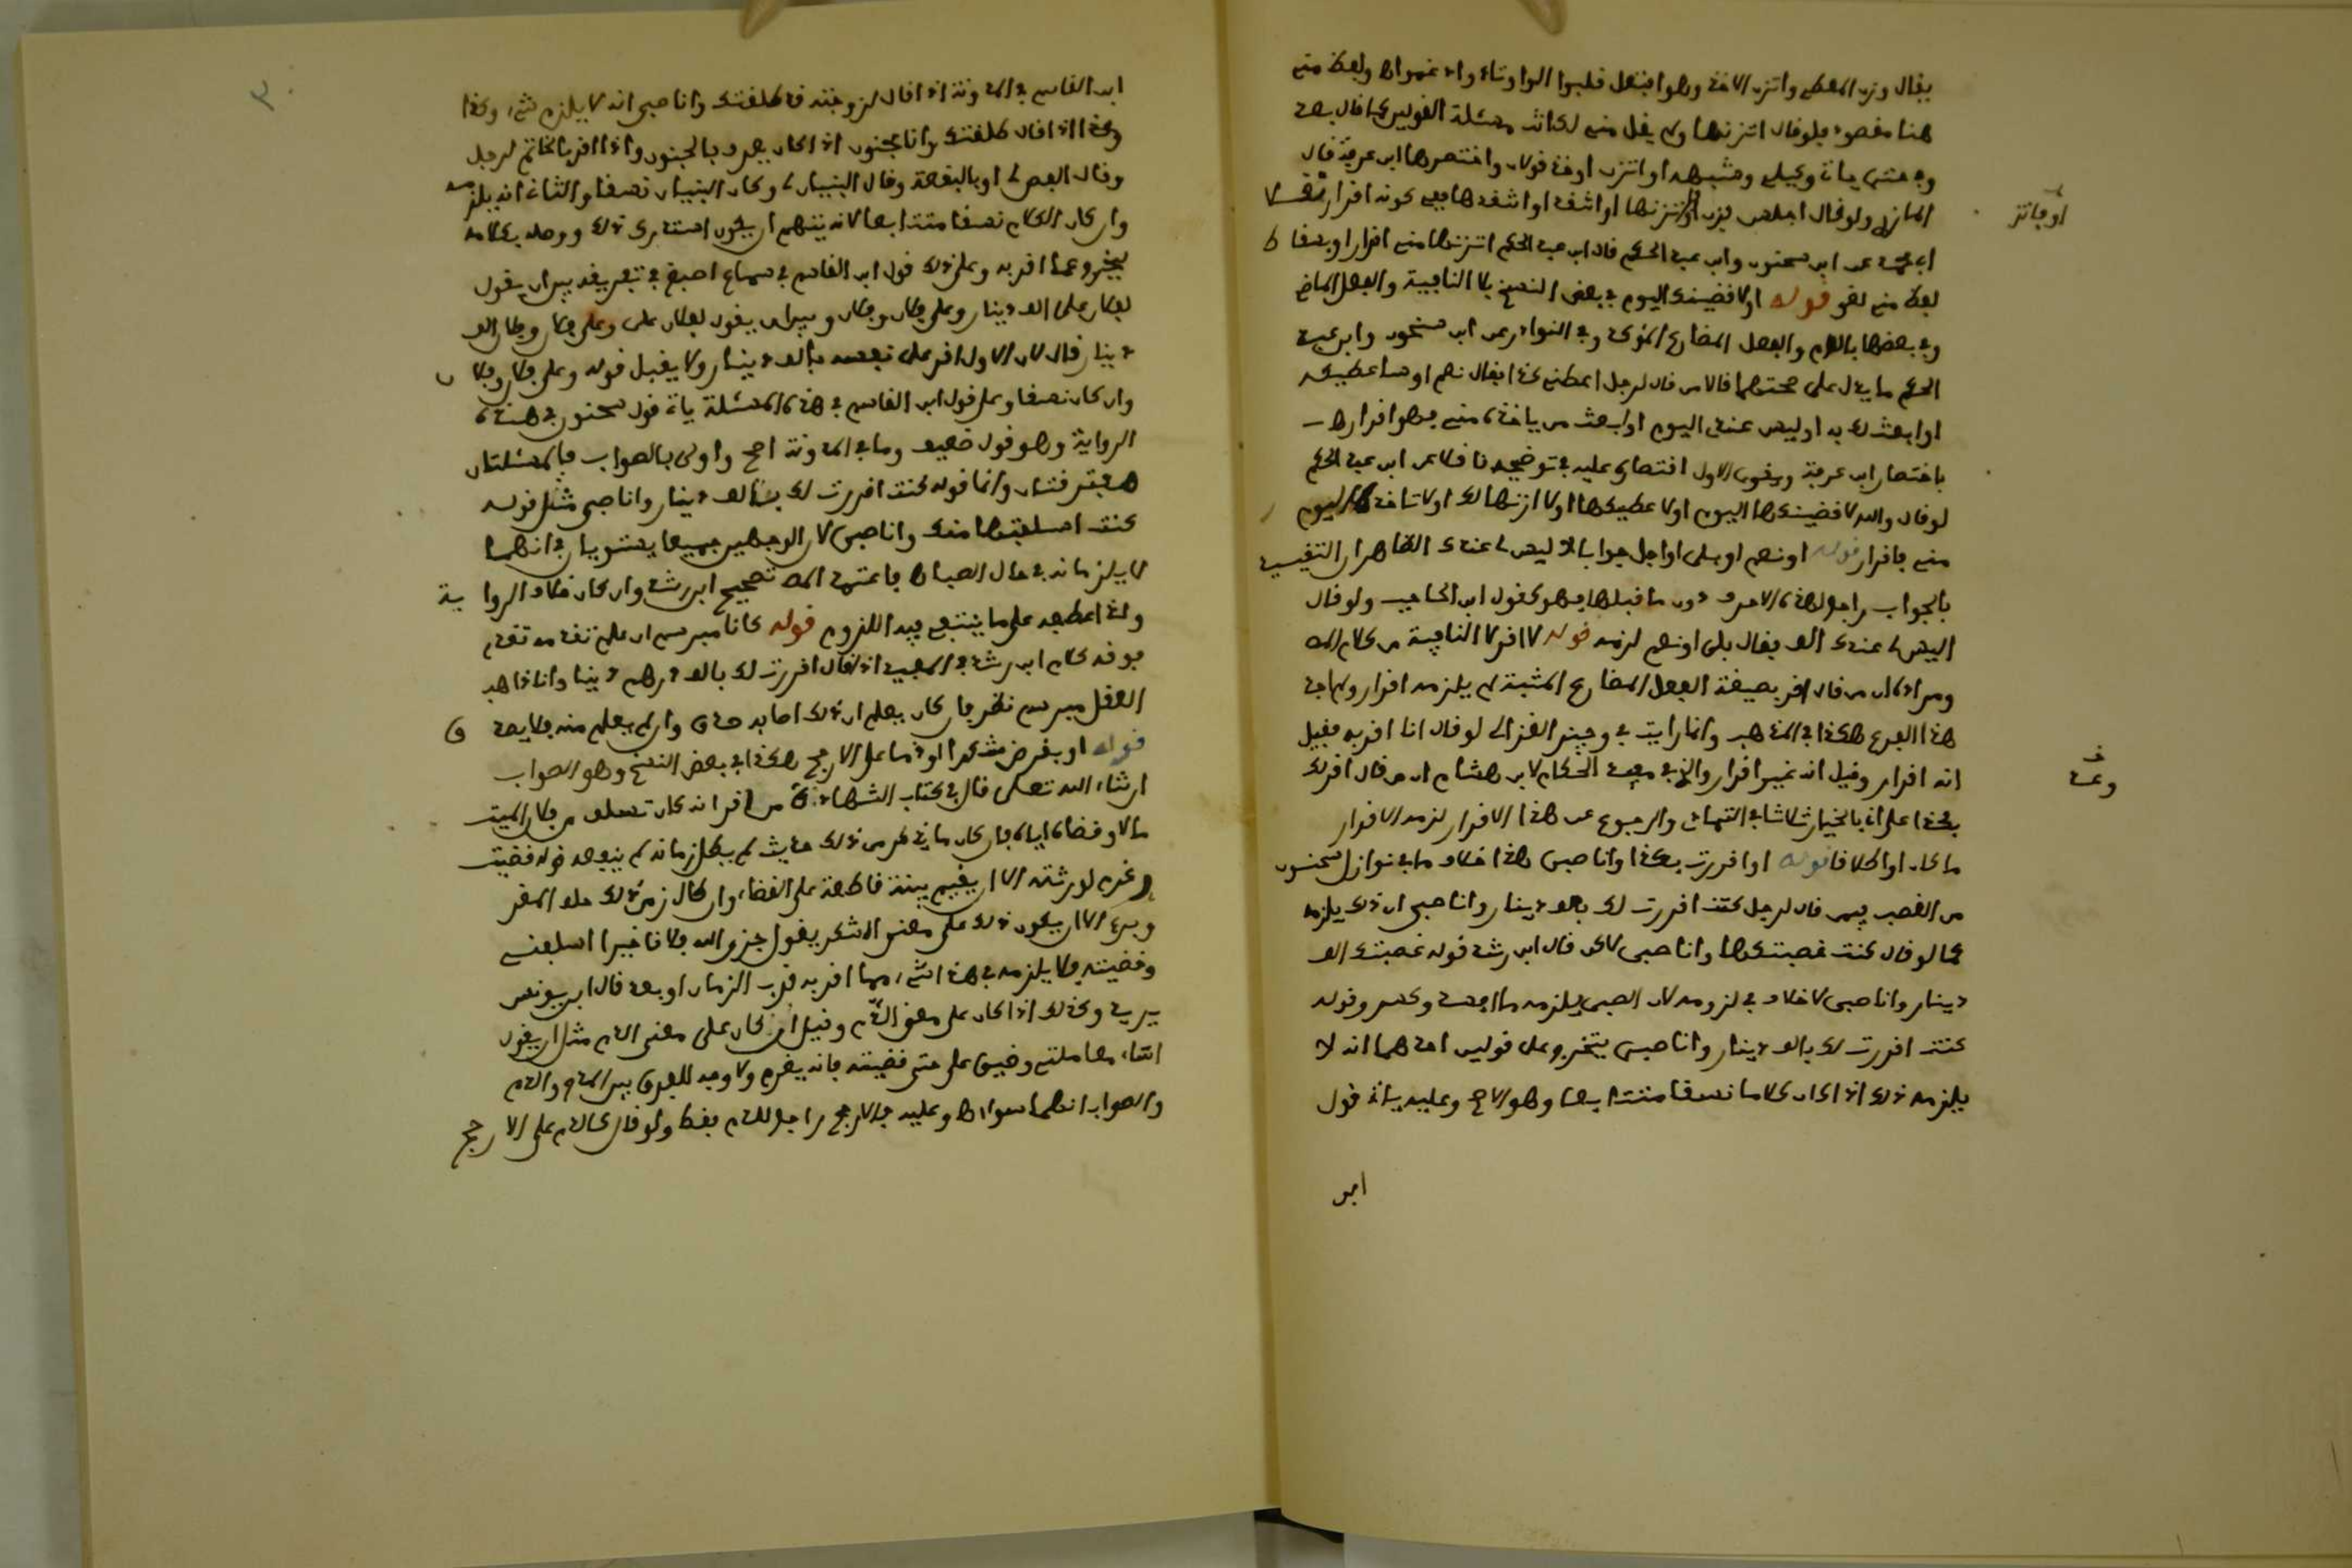 يقال وزن المعطي واتزن الاخذ وهو افتعل قلبوا الواو تاء وادغموها ولفظ مني
هنا مقصود فلو قال اتزنها ولم يقل مني لكانت مسئلة القولين كما قال بعد
المازري ولو قال اجلس فزن او اتزنها او اتنقدها
او فاتز
ابن سحنون وابن عبد الحكم قال ابن عبد الحكم اتزنها مني اقرار
لفظ مني لغو قوله او لاقضينك اليوم في بعض النسخ بلا النافية والفعل الماضي
وفي بعضها باللام والفعل المضارع المؤكد وفي النوادر عن ابن سحنون وابن عبد
الحكم ما يدل على صحتهما قالا من قال لرجل اعطني كذا فقال نعم او ساعطيكه
او ابعث لك به او ليس عندي اليوم او ابعث من ياخذه مني فهو اقرار هـ
باختصار ابن عرفة وبنحو الاول اقتصر عليه في توضيحه ناقلا عن ابن عبد الحكم
لو قال والله لا قضيتكها اليوم او لا اعطيكها او لا ازنها لك او لا تاخذها اليوم
مني فاقرار قوله او نعم او بلى او اجل جوابا لاليس لي عندك الظاهر ان التقييد
بالجواب راجع لهذه الاحرف دون ما قبلها فهو كقول ابن الحاجب ولو قال
اليس لي عندك الف فقال بلى او نعم لزمه قوله لا اقر لا النافية من كلام المص
ومراده ان من قال اقر بصيغة الفعل المضارع المثبت لم يلزمه اقرار ولم اجد
هذا الفرع هكذا في المذهب وانما رايت في وجيز الغزالي لو قال انا اقر به فقيل
انه اقرار وقيل انه غير اقرار والذي في مفيد الحكام لابن هشام ان من قال اقر لك
بكذا على اني بالخيار ثلاثا في التمادي والرجوع عن هذا الاقرار لزمه الاقرار
ما كان او طلاقا قوله او اقررت بكذا وانا صبي هذا خلاف ما في نوازل سحنون
من الغصب فيمن قال لرجل كنت اقررت لك بالف دينار وانا صبي ان ذلك يلزمه
كما لو قال كنت غصبتكها وانا صبي قال ابن رشد قوله غصبتك الف
دينار وانا صبي لا خلاف في لزومه لان الصبي يلزمه ما افسد وكسر وقوله
كنت اقررت لك بالف دينار وانا صبي يتخرج على قولين احدهما انه لا
يلزمه ذلك اذا كان كلاما نسقا متتابعا وهو الاصح وعليه ياتي قول
ابن
ابن القاسم في المدونة اذا قال لزوجته قد طلقتك وانا صبي انه لا يلزمه شيء وكذا
وكذا اذا قال طلقتك وانا مجنون اذا كان يعرف بالجنون واذا اقر بالخاتم لرجل
وقال الفص لي او بالبقعة وقال البنيان لي وكان البنيان نسقا والثاني انه يلزمه
وان كان الكلام نسقا متتابعا لانه يتهم ان يكون استدرك ذلك ووصله بكلامه
ليخرج عما اقر به وعلى ذلك قول ابن القاسم في سماع اصبغ في تفريقه بين ان يقول
لفلان علي الف دينار وعلى فلان وفلان وبين ان يقول لفلان علي وعلى فلان وفلان الف
دينار قال لان الاول اقر على نفسه بالف دينار ولا يقبل قوله وعلى فلان وفلان
وان كان نسقا وعلى قول ابن القاسم في هذه المسئلة ياتي قول سحنون في هذه
الرواية وهو قول ضعيف وما في المدونة اصح واولى بالصواب فالمسئلتان
مفترقتان وانما قوله كنت اقررت لك بالف دينار وانا صبي مثل قوله
كنت استلفتها منك وانا صبي لان الوجهين جميعا يستويان في انهما
لا يلزمانه في حال الصبا هـ فاعتمد المص تصحيح ابن رشد وان كان خلاف الرواية
ولذا عطفه على ما ينتفي فيه اللزوم قوله كانا مبرسم ان علم تقدمه تقدم
فوقه كلام ابن رشد اذا قال اقررت لك بالف درهم دينا وانا ذاهب
العقل مبرسم نظر فان كان يعلم ان ذلك اصابه صدق وان لم يعلم منه فلا يصدق
قوله او بقرض شكرا او ذما على الارجح هكذا في بعض النسخ وهو الصواب
ان شاء الله تعلى قال في كتاب الشهادة من اقر انه كان تسلف من فلان الميت
مالا وقضاه اياه فان كان ما ذكر من ذلك حديث لم يطل زمانه لم ينفعه قوله قضيت
وغرم لورثته الا ان يقيم بينة قاطعة على القضاء وان طال زمن ذلك حلف المقر
وبرئ الا ان يكون ذلك على معنى الشكر يقول جزى الله فلانا خيرا اسلفني
وقضيته فلا يلزمه في هذا شيء مما اقر به قرب الزمان او بعد قال ابن يونس
يريد وكذلك اذا كان على معنى الذم وقيل ان كان على معنى الذم مثل ان يقول
اساء معاملتي وضيق علي حتى قضيته فانه يغرم ولا وجه للفرق بين المدح والذم
والصواب انهما سواء هـ وعليه فالارجح راجع للذم فقط ولو قال كالذم على الارجح